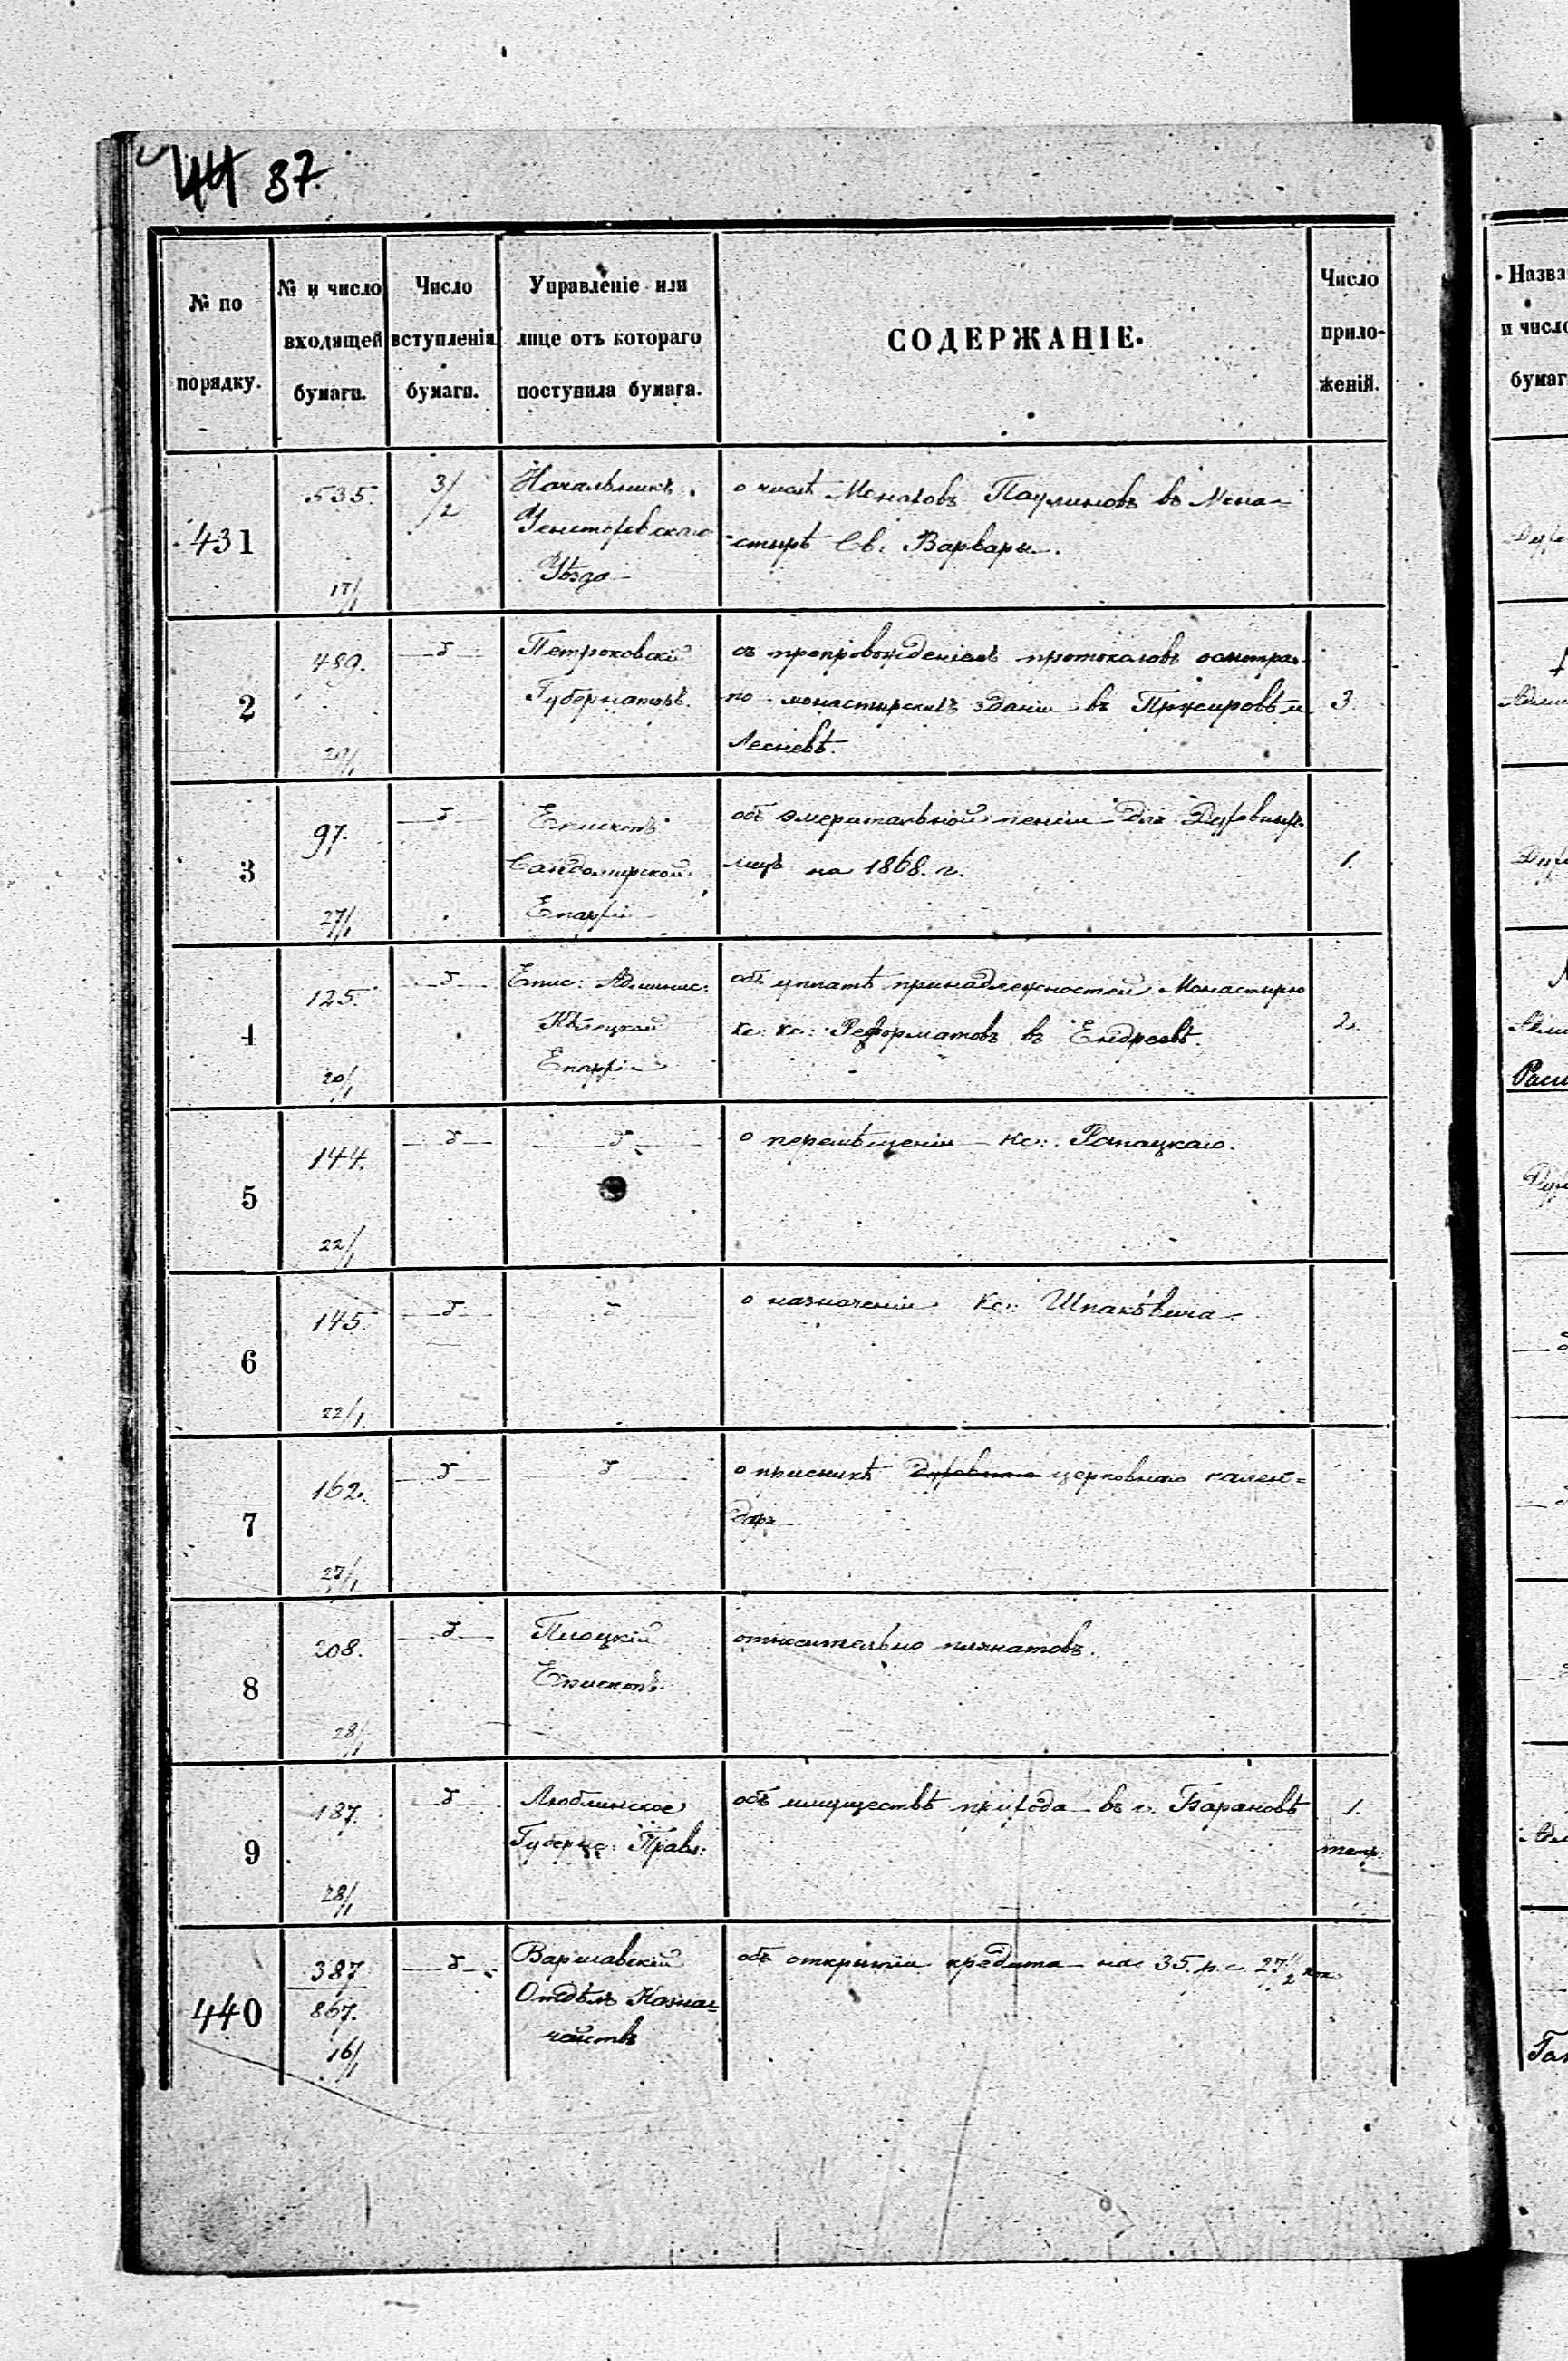 44 37.
№ по порядку.
№ и число входящей бумаги.
Число вступленія бумаги.
Управленіе или лице отъ котораго поступила бумага.
СОДЕРЖАНІЕ.
Число приложеній.
431
535.
17/1
3/2
Начальникъ
Ченстоховскаго
Уѣзда
о числѣ Монаховъ Паулиновъ въ Мона=
стырѣ Св. Варвары.
2
489.
29/1
Петроковскій
Губернаторъ.
съ препровожденіемъ протоколовъ осмотра
по монастырскихъ зданій въ Пржировѣ и
Лесневѣ.
3.
3
97.
27/1
Епископъ
Сандомирской
Епархіи
объ эмеритальной пенсіи для Духовныхъ
лицъ на 1868. г.
1.
4
125.
20/1
Епис: Админис:
Кѣлецкой
Епархіи
объ уплатѣ принадлежностей Монастырю
кс: кс: Реформатовъ въ Ендреевѣ.
2.
5
144.
22/1
о перемѣщеніи Кс: Рапацкаго.
6
145.
22/1
о назначеніи Кс: Шпаковича
7
162.
27/1
о присылкѣ церковнаго кален=
даря
8
208.
28/1
Плоцкій
Епископъ.
относительно плакатовъ.
9
187.
28/1
Люблинское
Губернс: Правл:
объ имуществѣ прихода въ г. Барановѣ
1.
тетр.
440
387
867.
16/1
Варшавскій
Отдѣлъ Казна=
чействъ
объ открытіи кредита на 35. р. с. 27 1/2 коп.
Назва
и число
бумаг